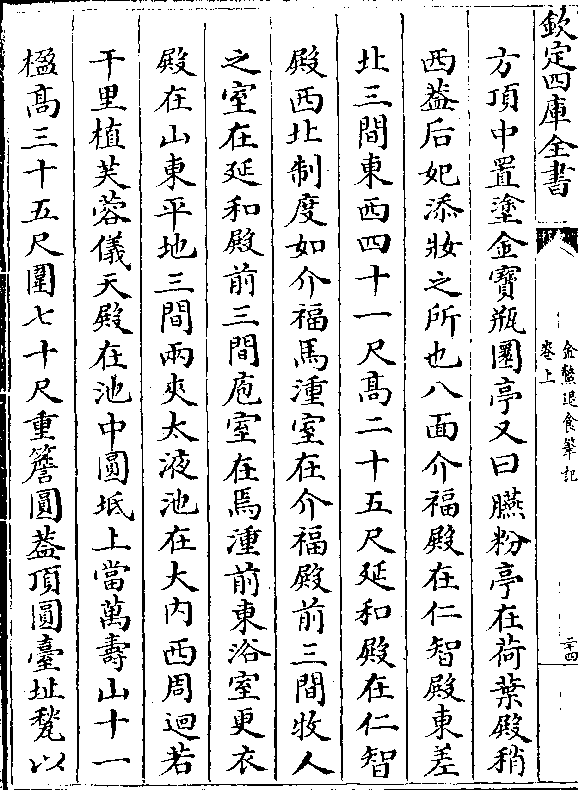 欽定四庫全書
金鰲退食筆記
卷上
二十四
方頂中置塗金寶瓶圓亭又曰臙粉亭在荷葉殿稍
西葢后妃添妝之所也八面介福殿在仁智殿東差
北三間東西四十一尺髙二十五尺延和殿在仁智
殿西北制度如介福馬湩室在介福殿前三間牧人
之室在延和殿前三間庖室在馬湩前東浴室更衣
殿在山東平地三間兩夾太液池在大内西周迴若
干里植芙蓉儀天殿在池中圓坻上當萬壽山十一
楹髙三十五尺圍七十尺重簷圓葢頂圓臺址甃以